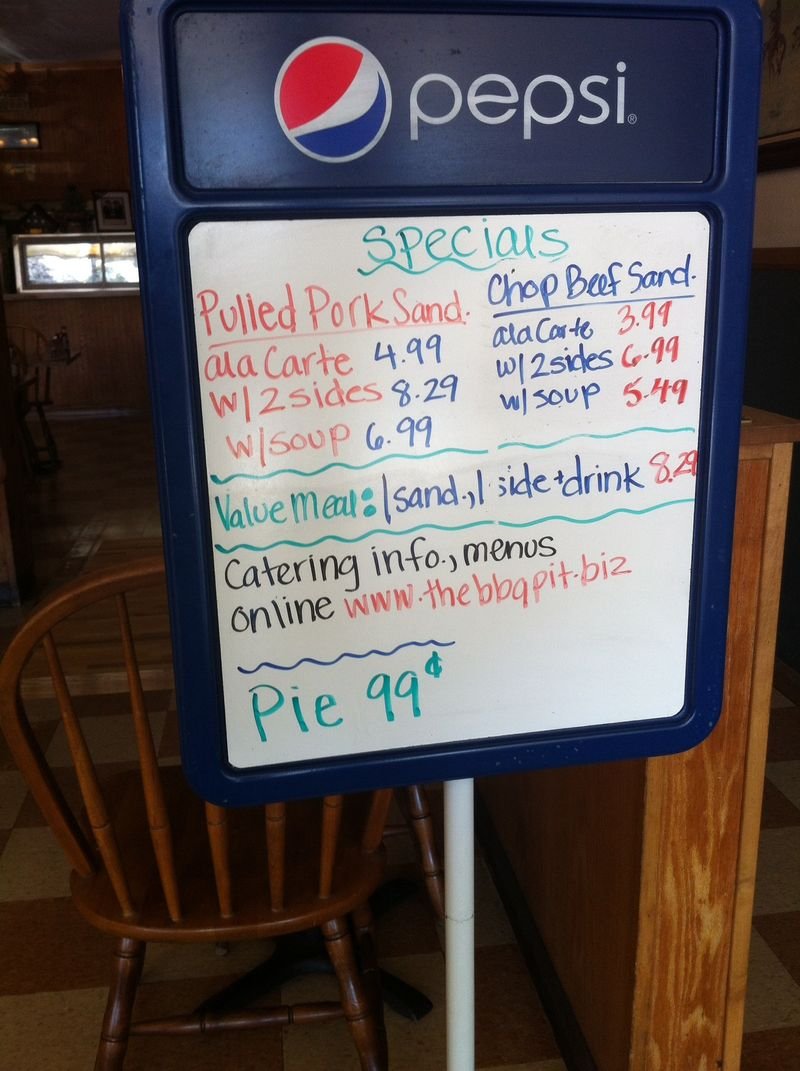 pepsi®
Specials
Pulled Pork Sand.
ala Carte 4.99
w/2 sides 8.29
w/soup 6.99
Chop Beef Sand.
ala Carte 3.99
w/2 sides 6.99
w/soup 5.49
Value Meal: 1 sand., 1 side + drink 8.29
Catering info., menus
online www.thebbqpit.biz
Pie 99¢